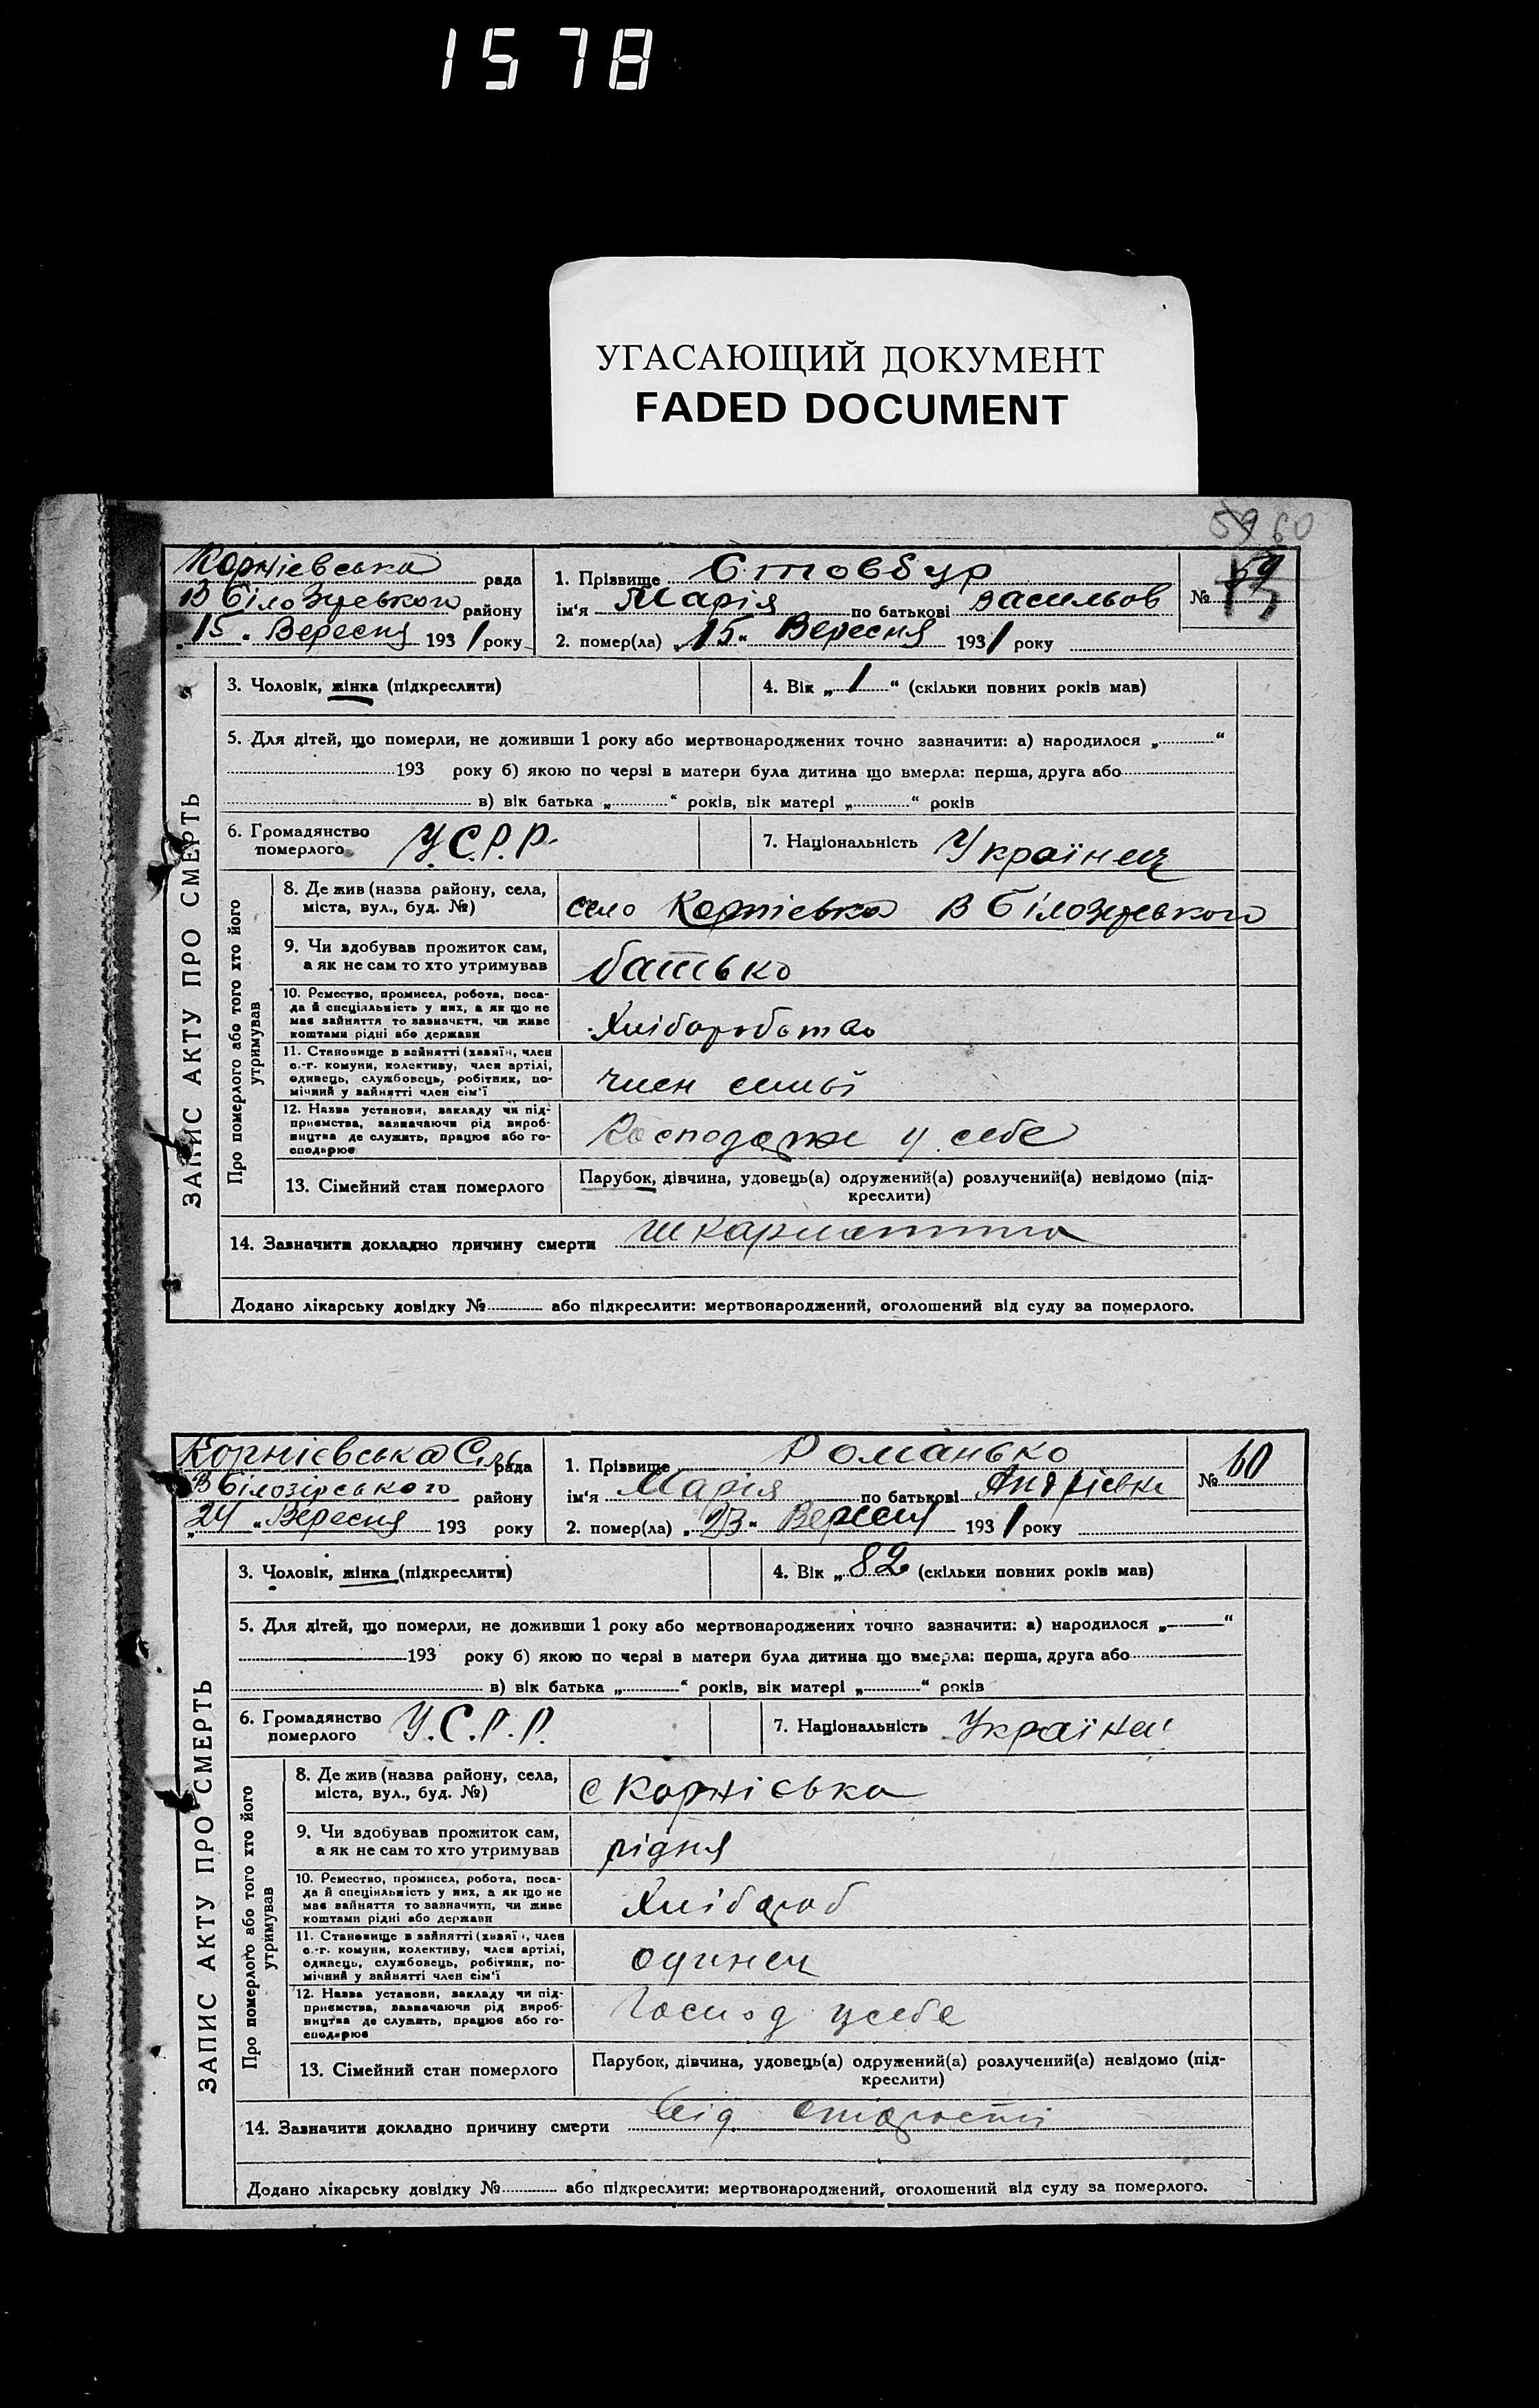 1578
УГАСАЮЩИЙ ДОКУМЕНТ
FADED DOCUMENT
59 60
Корнієвська рада
В Білозерського району
„15“ Вересня 1931 року
1. Прізвище Стовбур
ім‘я Марія по батькові Васильов
2. помер(ла) „15“ Вересня 1931 року
№ 59
ЗАПИС АКТУ ПРО СМЕРТЬ
3. Чоловік, жінка (підкреслити)
4. Вік „1“ (скільки повних років мав)
5. Для дітей, що померли, не доживши 1 року або мертвонароджених точно зазначити: а) народилося „ “
193 року б) якою по черзі в матери була дитина що вмерла: перша, друга або
в) вік батька „ “ років, вік матері „ “ років
6. Громадянство померлого У.С.Р.Р.
7. Національність Українец
Про померлого або того хто його утримував
8. Де жив (назва району, села,
міста, вул., буд. №)
село Корнієвка В Білозерського
9. Чи здобував прожиток сам,
а як не сам то хто утримував
батько
10. Ремество, промисел, робота, поса-
да й спеціяльність у них, а як що не
має зайняття то зазначити, чи живе
коштами рідні або держави
Хліборобство
11. Становище в зайнятті (хазяїн, член
с.-г. комуни, колективу, член артілі,
одинець, службовець, робітник, по-
мічний у зайнятті член сім‘ї
член семьї
12. Назва установи, закладу чи під-
приємства, зазначаючи рід вироб-
ництва де служить, працює або го-
сподарює
у себе
13. Сімейний стан померлого
Парубок, дівчина, удовець(а) одружений(а) розлучений(а) невідомо (під-
креслити)
14. Зазначити докладно причину смерти шкарлатина
Додано лікарську довідку № або підкреслити: мертвонароджений, оголошений від суду за померлого.
Корнієвська С. рада
В Білозірського району
„24“ Вересня 193 року
1. Прізвище Романько
ім‘я Марія по батькові Андрієвна
2. помер(ла) „23“ Вересня 1931 року
№ 60
ЗАПИС АКТУ ПРО СМЕРТЬ
3. Чоловік, жінка (підкреслити)
4. Вік „82 (скільки повних років мав)
5. Для дітей, що померли, не доживши 1 року або мертвонароджених точно зазначити: а) народилося „ “
193 року б) якою по черзі в матери була дитина що вмерла: перша, друга або
в) вік батька „ “ років, вік матері „ “ років
6. Громадянство померлого У.С.Р.Р.
7. Національність
Про померлого або того хто його утримував
8. Де жив (назва району, села,
міста, вул., буд. №)
с Корнієвка
9. Чи здобував прожиток сам,
а як не сам то хто утримував
рідня
10. Ремество, промисел, робота, поса-
да й спеціяльність у них, а як що не
має зайняття то зазначити, чи живе
коштами рідні або держави
Хлібороб
11. Становище в зайнятті (хазяїн, член
с.-г. комуни, колективу, член артілі,
одинець, службовець, робітник, по-
мічний у зайнятті член сім‘ї
одинец
12. Назва установи, закладу чи під-
приємства, зазначаючи рід вироб-
ництва де служить, працює або го-
сподарює
Господ у себе
13. Сімейний стан померлого
Парубок, дівчина, удовець(а) одружений(а) розлучений(а) невідомо (під-
креслити)
14. Зазначити докладно причину смерти від старости
Додано лікарську довідку № або підкреслити: мертвонароджений, оголошений від суду за померлого.